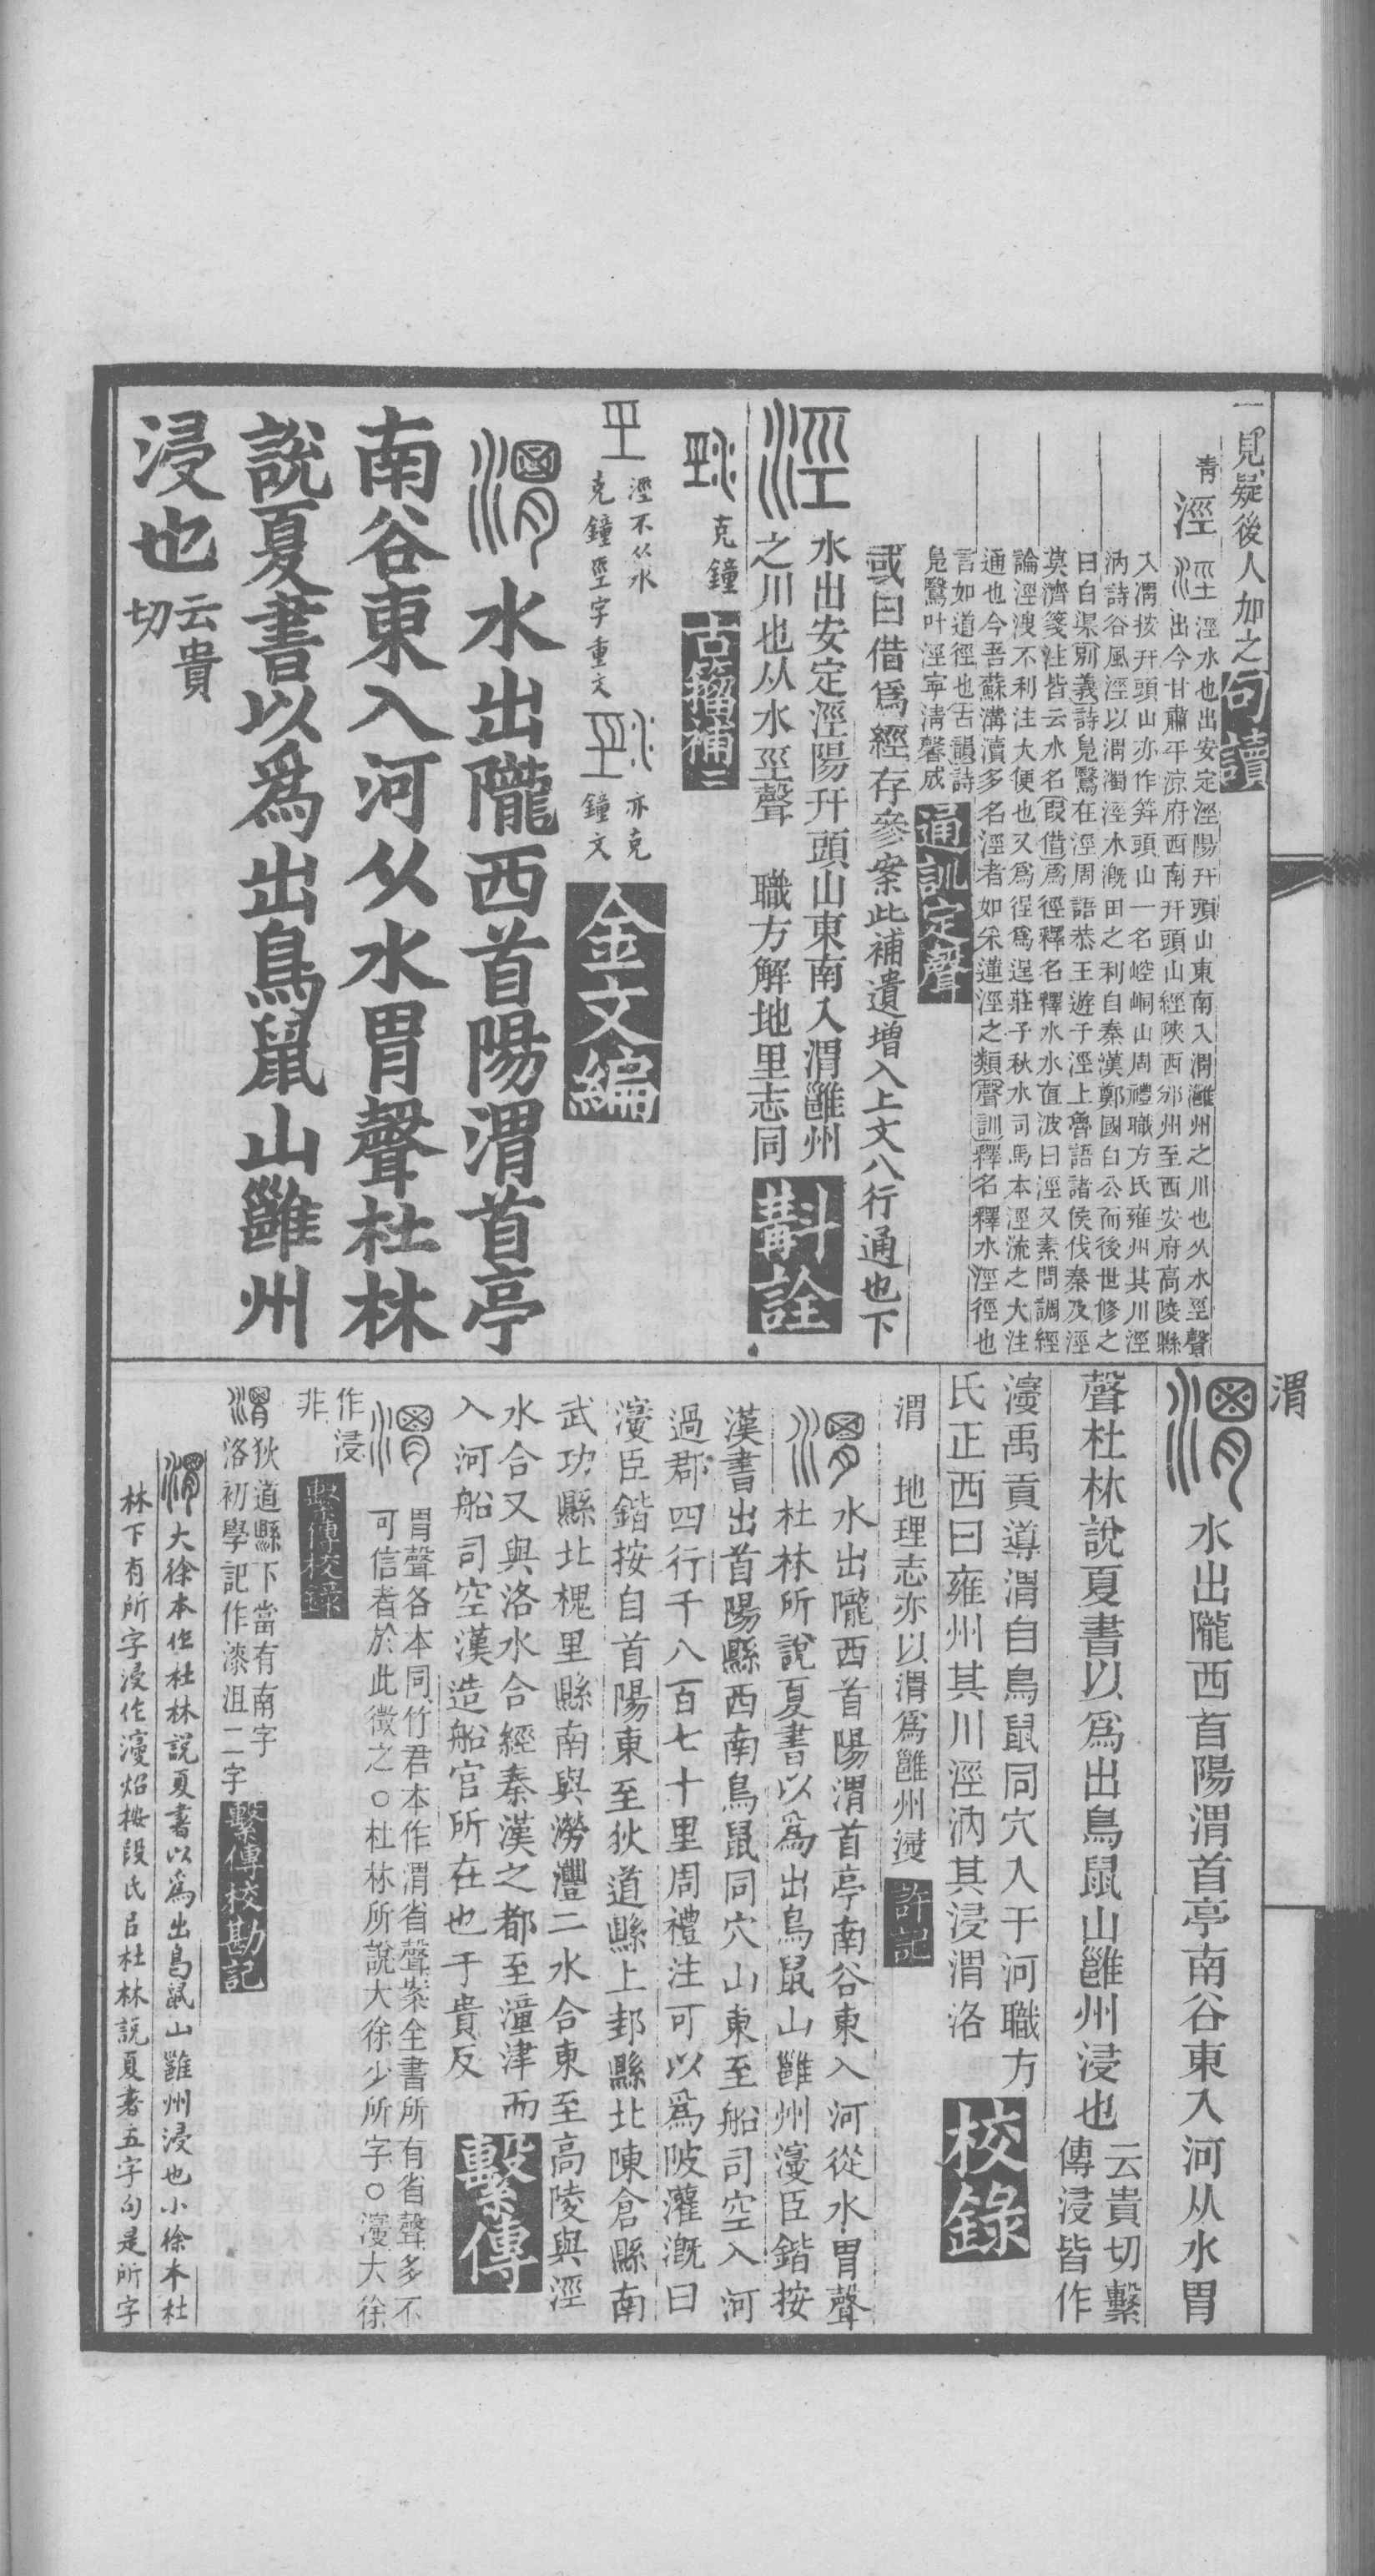 渭
一見疑後人加之句讀
青
涇
涇水也出安定涇陽幵頭山東南入渭雝州之川也从水巠聲
出今甘肅平涼府西南幵頭山經陝西邠州至西安府高陵縣
入渭按幵頭山亦作筓頭山一名崆峒山周禮職方氏雍州其川涇
汭詩谷風涇以渭濁涇水溉田之利自秦漢鄭國白公而後世修之
曰白渠別義詩鳧鷖在涇周語恭王遊于涇上魯語諸侯伐秦及涇
莫濟箋注皆云水名叚借爲徑釋名釋水水直波曰涇又素問調經
論涇溲不利注大便也又爲徑爲逞莊子秋水司馬本涇流之大注
通也今吾蘇溝瀆多名涇者如采蓮涇之類聲訓釋名釋水涇徑也
言如道徑也古韻詩
鳧鷖叶涇寧清馨成
通訓定聲
或曰借爲經存參案此補遺增入上文八行通也下
水出安定涇陽幵頭山東南入渭雝州
之川也从水巠聲 職方解地里志同
斠詮
克鐘
古籀補二
涇不从水
克鐘巠字重文
亦克
鐘文
金文編
水出隴西首陽渭首亭
南谷東入河从水胃聲杜林
說夏書以爲出鳥鼠山雝州
浸也
云貴
切
水出隴西首陽渭首亭南谷東入河从水胃
聲杜林說夏書以爲出鳥鼠山雝州浸也
云貴切繫
傳浸皆作
濅禹貢導渭自鳥鼠同穴入于河職方
氏正西曰雍州其川涇汭其浸渭洛
校錄
渭 地理志亦以渭爲雝州濅
許記
水出隴西首陽渭首亭南谷東入河從水胃聲
杜林所說夏書以爲出鳥鼠山雝州濅臣鍇按
漢書出首陽縣西南鳥鼠同穴山東至船司空入河
過郡四行千八百七十里周禮注可以爲陂灌溉曰
濅臣鍇按自首陽東至狄道縣上邽縣北陳倉縣南
武功縣北槐里縣南與澇灃二水合東至高陵與涇
水合又與洛水合經秦漢之都至潼津而
入河船司空漢造船官所在也于貴反
繫傳
胃聲各本同竹君本作渭省聲案全書所有省聲多不
可信者於此徵之○杜林所說大徐少所字○濅大徐
作浸
非
繫傳校錄
渭
狄道縣下當有南字
洛初學記作漆沮二字
繫傳校勘記
渭大徐本作杜林說夏書以爲出鳥鼠山雝州浸也小徐本杜
林下有所字浸作濅炤按段氏吕杜林說夏書五字句是所字